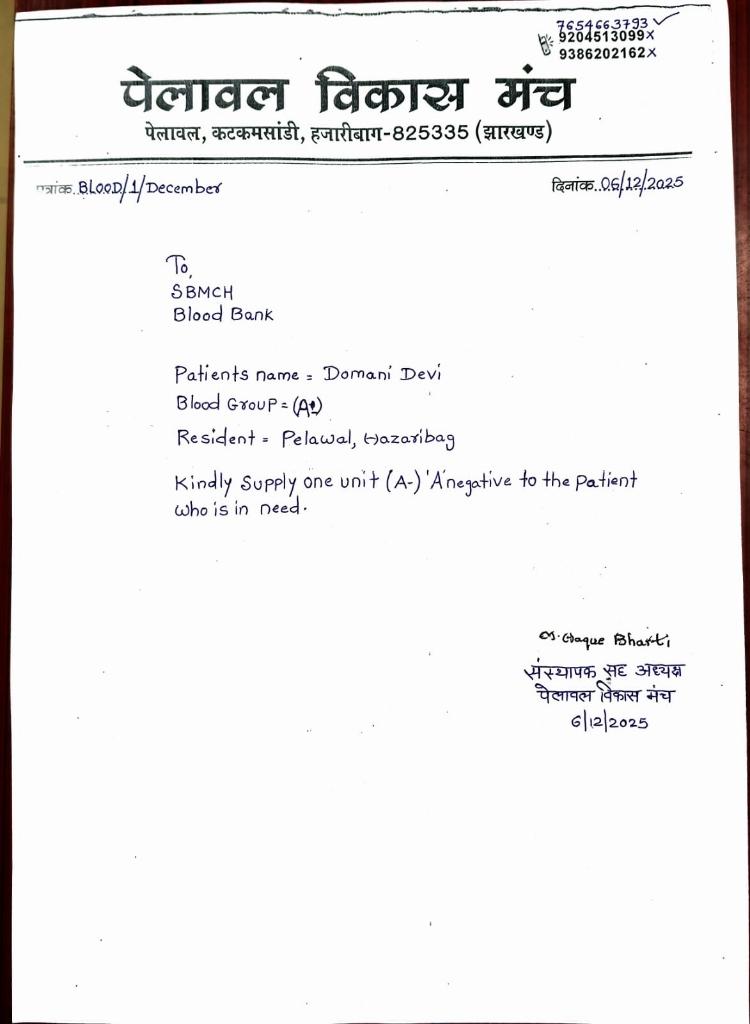 7654663793 ✓
9204513099x
9386202162x
पेलावल विकास मंच
पेलावल, कटकमसांडी, हजारीबाग-825335 (झारखण्ड)
त्रांक..BLOOD/1/December
दिनांक..06/12/2025
To,
SBMCH
Blood Bank
Patients name = Domani Devi
Blood Group = (A)
Resident = Pelawal, Hazaribag
Kindly Supply one unit (A-) 'A' negative to the Patient
who is in need.
Haque Bharti
संस्थापक सह अध्यक्ष
पेलावल विकास मंच
6/12/2025